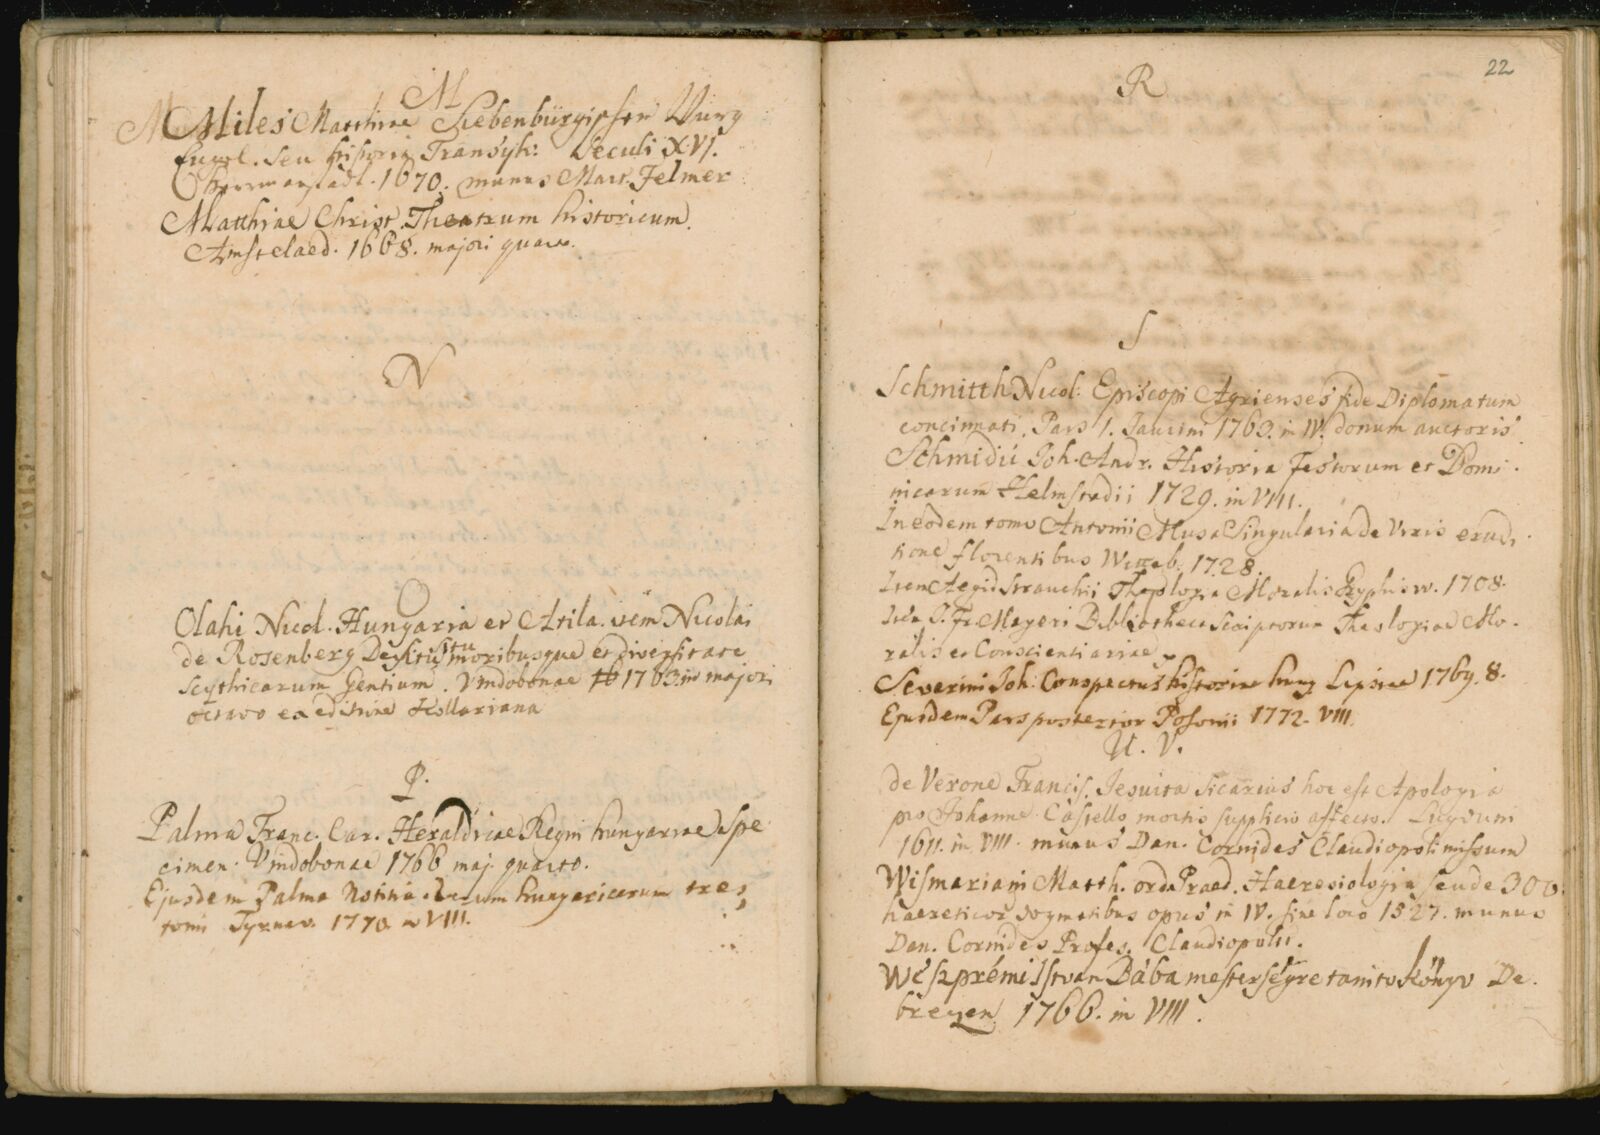 M
Miles Matthiae Siebenbürgischer Würg
Engel. seu historia Transylv: Seculi XVI.
Herrmanstadt. 1670. munus Mart. Felmer
Matthiae Christ. Theatrum historicum.
Amstelaed. 1668. majori quarto.
N
O
Olahi Nicol. Hungaria et Atila. item Nicolai
de Rosenberg De situ moribusque et diversitate
scythicarum Gentium. Vindobonae 1763 in majori
octavo ex editione Kollariana
P.
Palma Franc. Car. Heraldicae Regni hungariae spe
cimen. Vindobonae 1766 maj. quarto.
Ejusdem Palma Notitia rerum hungaricarum tres
tomi Tyrnav. 1770 in VIII.
22
R
S
Schmitth Nicol: Episcopi Agrienses fide Diplomatum
concinnati. Pars 1. Jaurini 1763. in IV. donum auctoris
Schmidii Joh. Andr. Historia Festorum et Domi.
nicarum Helmstadii 1729. in VIII.
In eodem tomo Antonii Musa Singularia de Viris erudi.
tione florentibus Witteb. 1728.
Item Aegid Strauchii Theologia Moralis Gryphisw. 1708.
Item J. Fr. Mayeri Bibliotheca Scriptorum Theologiae Mo.
ralis et Conscientiariae
Severini Joh: Conspectus historiae hung Lipsiae 1769. 8.
Ejusdem Pars posterior Posonii 1772. VIII.
U. V.
de Verone Francis. Jesuita sicarius hoc est Apologia
pro Johanne Castello mortis supplicio affecto. Lugduni
1611. in VIII. munus Dan. Cornides Claudiopoli missum
Wismariani Matth. ord Praed. Haeresiologia seu de 300.
haereticor dogmatibus opus in IV. sine loco 1527. munus
Dan. Cornides Profes. Claudiopolit.
Weszprémi Istvan Bába mesterségre tanito Könyv De.
breczen 1766. in VIII.